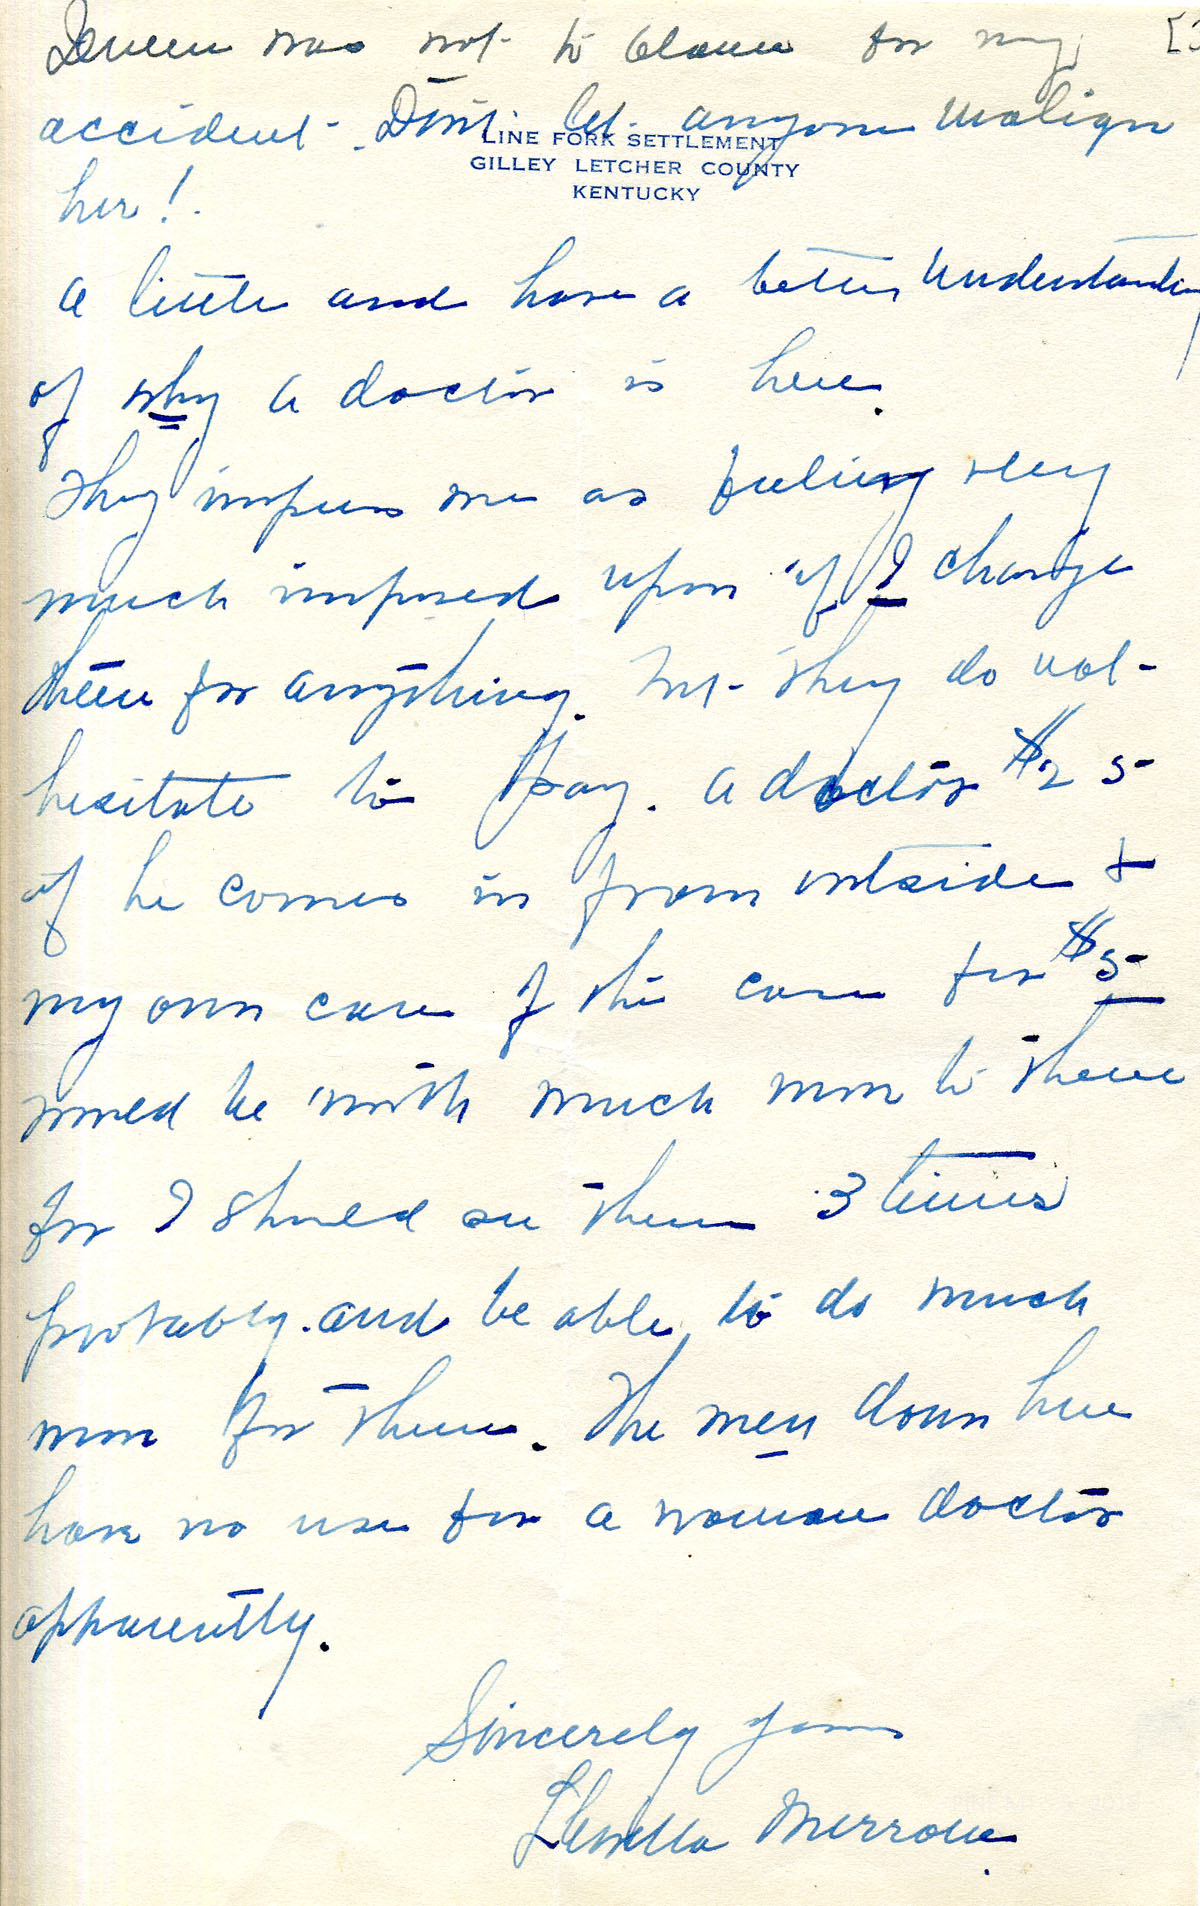 was not to blame for my [3
accident. Don't let anyone malign
LINE FORK SETTLEMENT
GILLEY LETCHER COUNTY
KENTUCKY
her!
a little and have a better understanding
of why a doctor is here.
They impress me as feeling very
much imposed upon if I charge
them for anything. But they do not
hesitate to pay a doctor $25
if he comes in from outside &
my own care of the case for $5
would be worth much more to them
for I should see them 3 times
probably and be able to do much
more for them. The men down here
have no use for a woman doctor
apparently.
Sincerely yours
Llewella Merrow.